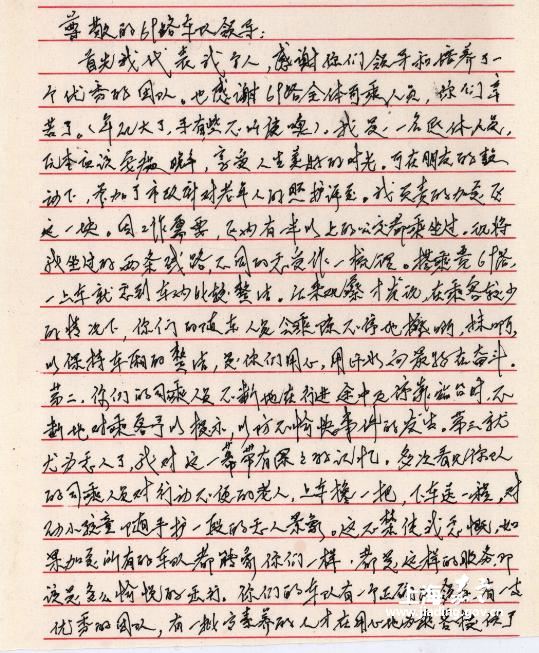 尊敬的69路车队领导：
首先我代表我个人，感谢你们领导和培养了一
个优秀的团队。也感谢69路全体司乘人员，你们辛
苦了。（年纪大了，手有些不听使唤）。我是一名退休人员，
原本应该安稳晚年，享受人生美好的时光。可在朋友的鼓
动下，参加了市政针对老年人的照护评估。我负责的加定区
这一块。因工作需要，区内有半以上的公交都乘坐过。现将
我坐过的两条线路不同的感受作一梳理。搭乘贵69路，
一上车就感到车内比较整洁。后来观察才发现，在乘客较少
的情况下，你们的随车人员会乘隙不停地擦啊，抹啊，
以保持车厢的整洁，是你们用心，用汗水向最好在奋斗。
第二，你们的司乘人员不断地在行进途中及停靠站台时，不
断地对乘客予以提示，以防不愉快事件的发生。第三就
尤为感人了，我对这一幕带有深深的记忆。多次看见你们
的司乘人员对行动不便的老人，上车搀一把，下车送一程，对
幼小孩童随手护一段的感人景象。这不禁使我感慨，如
果加定所有的车队都能象你们一样，都是这样的服务那
该是多么愉快的出行。你们的车队有一个正确的 有一支
优秀的团队，有一批高素养的人才在用心地为乘客提供了
上海嘉定
www.jiading.gov.cn